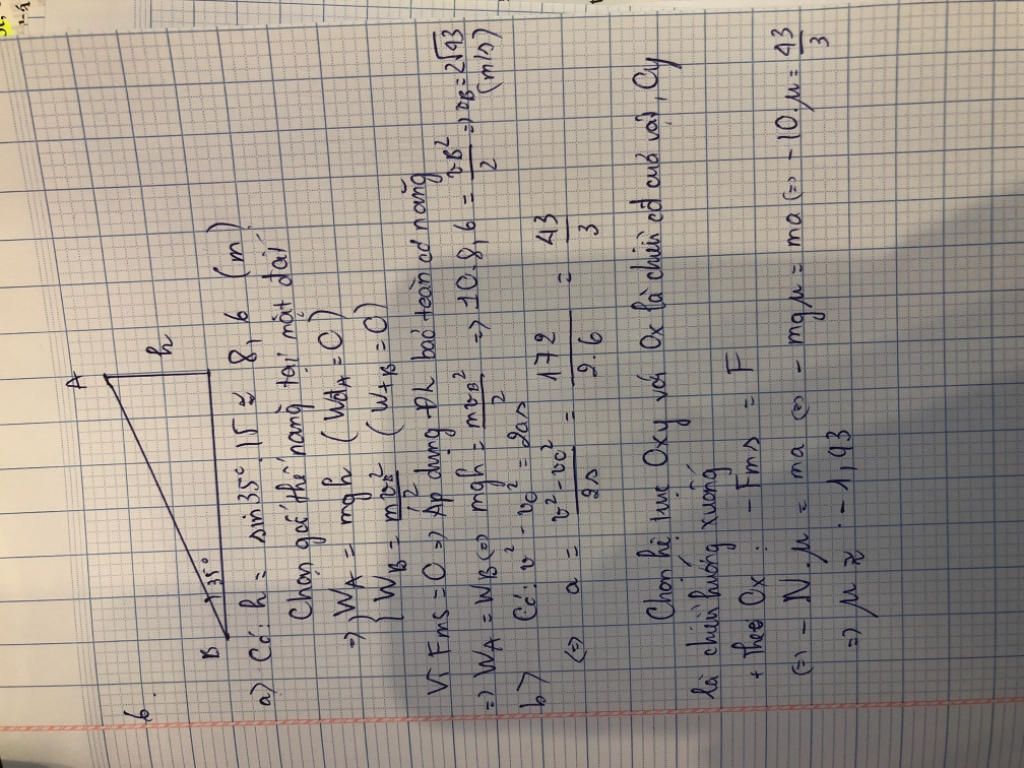 6.
A
h
B
35°
a) Có: h = sin35° . 15 ≈ 8,6 (m)
Chọn gốc thế năng tại mặt đất
=> { WA = mgh (WđA = 0)
{ WB = mvB²/2 (WtB = 0)
Vì Fms = 0 => Áp dụng Đh bảo toàn cơ năng
=> WA = WB (=) mgh = mvB²/2 => 10.8,6 = vB²/2 => vB = 2√43 (m/s)
b) Có: v² - v0² = 2as
(=) a = v² - v0²/2s = 172/2.6 = 43/3
Chọn hệ trục Oxy với Ox là chiều cđ của vật, Oy
là chiều hướng xuống
+ theo Ox: - Fms = F
(=) - N.μ = ma (=) - mgμ = ma (=) - 10.μ = 43/3
=> μ ≈ - 1,43